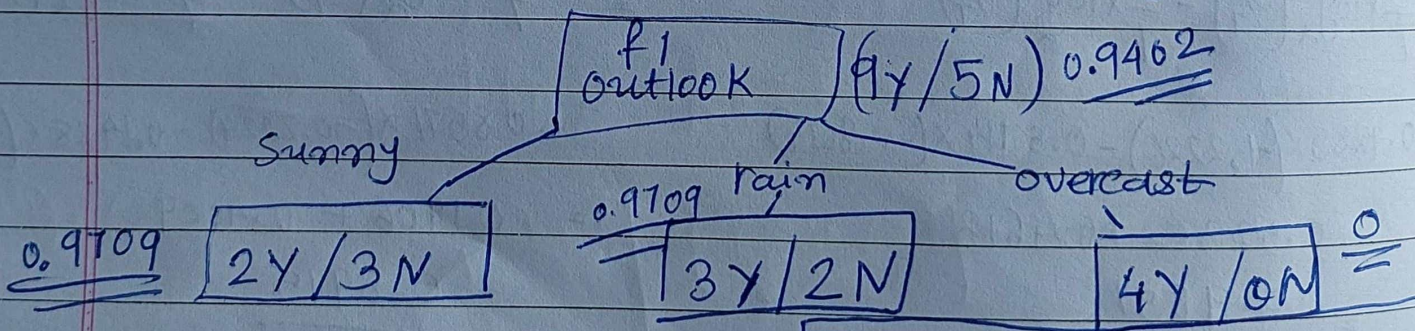 f1
outlook (9Y/5N) 0.9402
Sunny
rain
overcast
0.9709 2Y/3N
0.9709 3Y/2N
4Y/0N 0